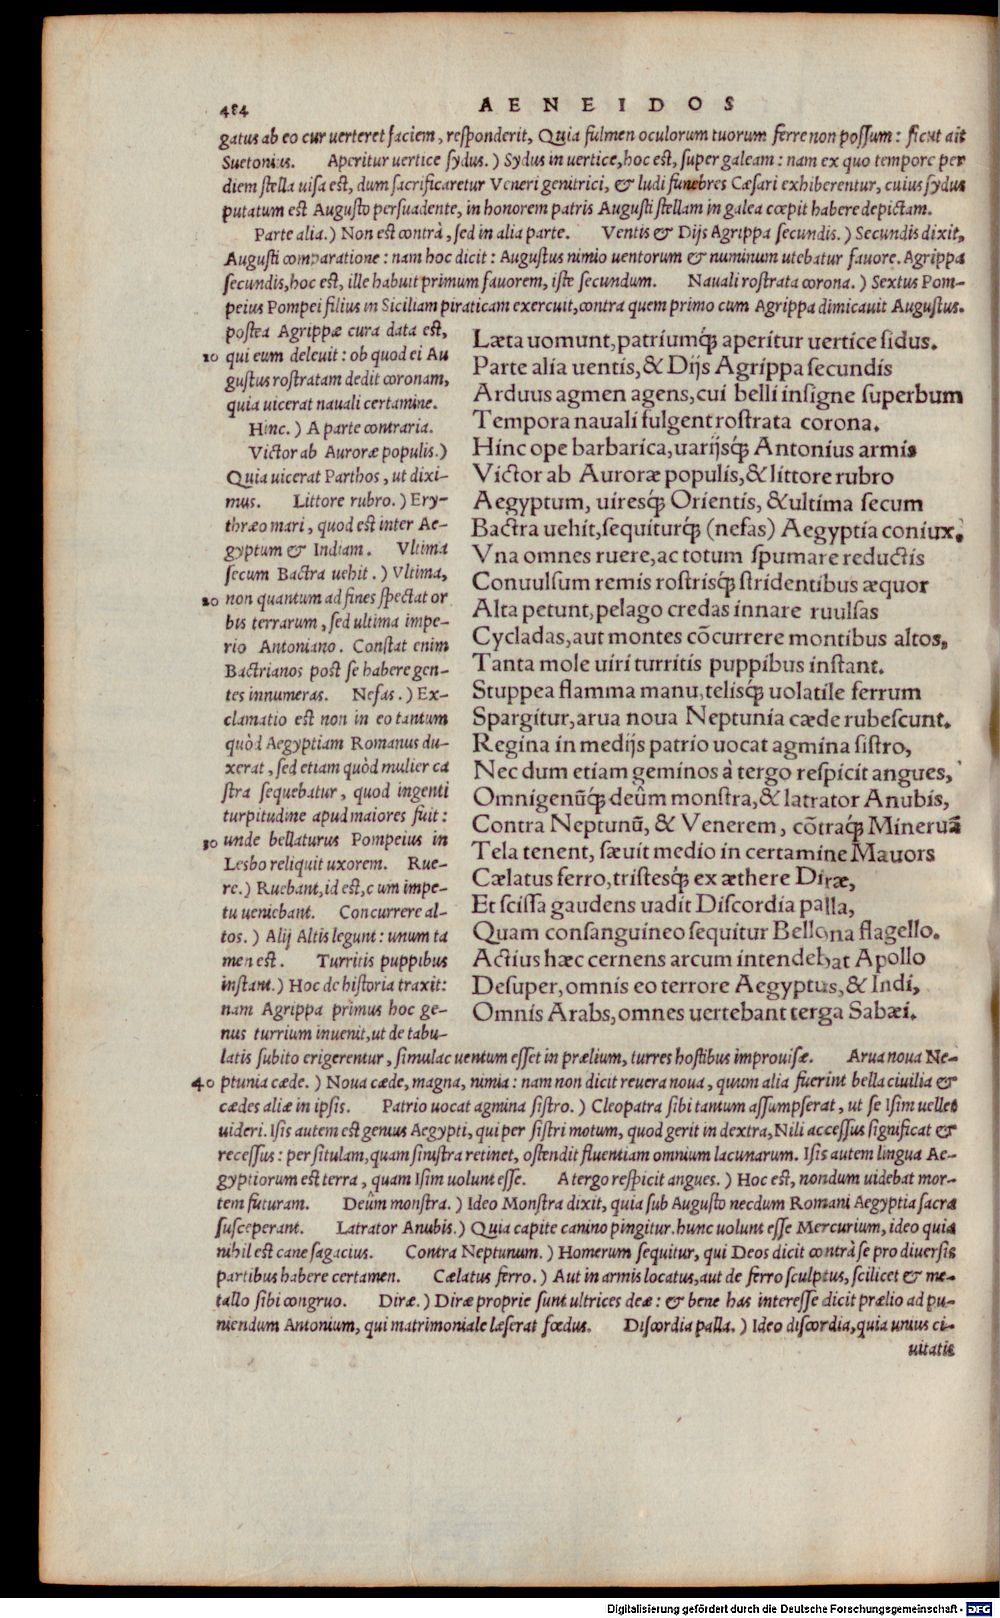 484 AENEIDOS
gatus ab eo cur uerteret faciem, responderit, Quia fulmen oculorum tuorum ferre non possum: sicut ait
Suetonius. Aperitur uertice sydus.) Sydus in uertice, hoc est, super galeam: nam ex quo tempore per
diem stella uisa est, dum sacrificaretur Veneri genitrici, & ludi funebres Cæsari exhiberentur, cuius sydus
putatum est Augusto persuadente, in honorem patris Augusti stellam in galea cœpit habere depictam.
Parte alia.) Non est contrà, sed in alia parte. Ventis & Dijs Agrippa secundis.) Secundis dixit,
Augusti comparatione: nam hoc dicit: Augustus nimio uentorum & numinum utebatur fauore. Agrippa
secundis, hoc est, ille habuit primum fauorem, iste secundum. Nauali rostrata corona.) Sextus Pom-
peius Pompei filius in Siciliam piraticam exercuit, contra quem primo cum Agrippa dimicauit Augustus.
postea Agrippæ cura data est,
10 qui eum deleuit: ob quod ei Au
gustus rostratam dedit coronam,
quia uicerat nauali certamine.
Hinc.) A parte contraria.
Victor ab Auroræ populis.)
Quia uicerat Parthos, ut dixi-
mus. Littore rubro.) Ery-
thræo mari, quod est inter Ae-
gyptum & Indiam. Vltima
secum Bactra uehit.) Vltima,
20 non quantum ad fines spectat or
bis terrarum, sed ultima impe-
rio Antoniano. Constat enim
Bactrianos post se habere gen-
tes innumeras. Nefas.) Ex-
clamatio est non in eo tantum
quòd Aegyptiam Romanus du-
xerat, sed etiam quòd mulier ca
stra sequebatur, quod ingenti
turpitudine apud maiores fuit:
30 unde bellaturus Pompeius in
Lesbo reliquit uxorem. Rue-
re.) Ruebant, id est, cum impe-
tu ueniebant. Concurrere al-
tos.) Alij Altis legunt: unum ta
men est. Turritis puppibus
instant.) Hoc de historia traxit:
nam Agrippa primus hoc ge-
nus turrium inuenit, ut de tabu-
Læta uomunt, patriumq́; aperitur uertice sidus.
Parte alia uentis, & Dijs Agrippa secundis
Arduus agmen agens, cui belli insigne superbum
Tempora nauali fulgent rostrata corona.
Hinc ope barbarica, uarijsq́; Antonius armis
Victor ab Auroræ populis, & littore rubro
Aegyptum, uiresq́; Orientis, & ultima secum
Bactra uehit, sequiturq́; (nefas) Aegyptia coniux.
Vna omnes ruere, ac totum spumare reductis
Conuulsum remis rostrisq́; stridentibus æquor
Alta petunt, pelago credas innare ruulsas
Cycladas, aut montes cōcurrere montibus altos,
Tanta mole uiri turritis puppibus instant.
Stuppea flamma manu, telisq́; uolatile ferrum
Spargitur, arua noua Neptunia cæde rubescunt.
Regina in medijs patrio uocat agmina sistro,
Nec dum etiam geminos à tergo respicit angues,
Omnigenūq́; deûm monstra, & latrator Anubis,
Contra Neptunū, & Venerem, cōtraq́; Mineruā
Tela tenent, sæuit medio in certamine Mauors
Cælatus ferro, tristesq́; ex æthere Diræ,
Et scissa gaudens uadit Discordia palla,
Quam consanguineo sequitur Bellona flagello.
Actius hæc cernens arcum intendebat Apollo
Desuper, omnis eo terrore Aegyptus, & Indi,
Omnis Arabs, omnes uertebant terga Sabæi.
latis subito erigerentur, simulac uentum esset in prælium, turres hostibus improuisæ. Arua noua Ne-
40 ptunia cæde.) Noua cæde, magna, nimia: nam non dicit reuera noua, quum alia fuerint bella ciuilia &
cædes aliæ in ipsis. Patrio uocat agmina sistro.) Cleopatra sibi tantum assumpserat, ut se Isim uellet
uideri. Isis autem est genius Aegypti, qui per sistri motum, quod gerit in dextra, Nili accessus significat &
recessus: per situlam, quam sinistra retinet, ostendit fluentiam omnium lacunarum. Isis autem lingua Ae-
gyptiorum est terra, quam Isim uolunt esse. A tergo respicit angues.) Hoc est, nondum uidebat mor-
tem futuram. Deûm monstra.) Ideo Monstra dixit, quia sub Augusto necdum Romani Aegyptia sacra
susceperant. Latrator Anubis.) Quia capite canino pingitur. hunc uolunt esse Mercurium, ideo quia
nihil est cane sagacius. Contra Neptunum.) Homerum sequitur, qui Deos dicit contrà se pro diuersis
partibus habere certamen. Cælatus ferro.) Aut in armis locatus, aut de ferro sculptus, scilicet & me-
tallo sibi congruo. Diræ.) Diræ proprie sunt ultrices deæ: & bene has interesse dicit prælio ad pu-
niendum Antonium, qui matrimoniale læserat fœdus. Discordia palla.) Ideo discordia, quia unius ci-
uitatis
Digitalisierung gefördert durch die Deutsche Forschungsgemeinschaft - DFG